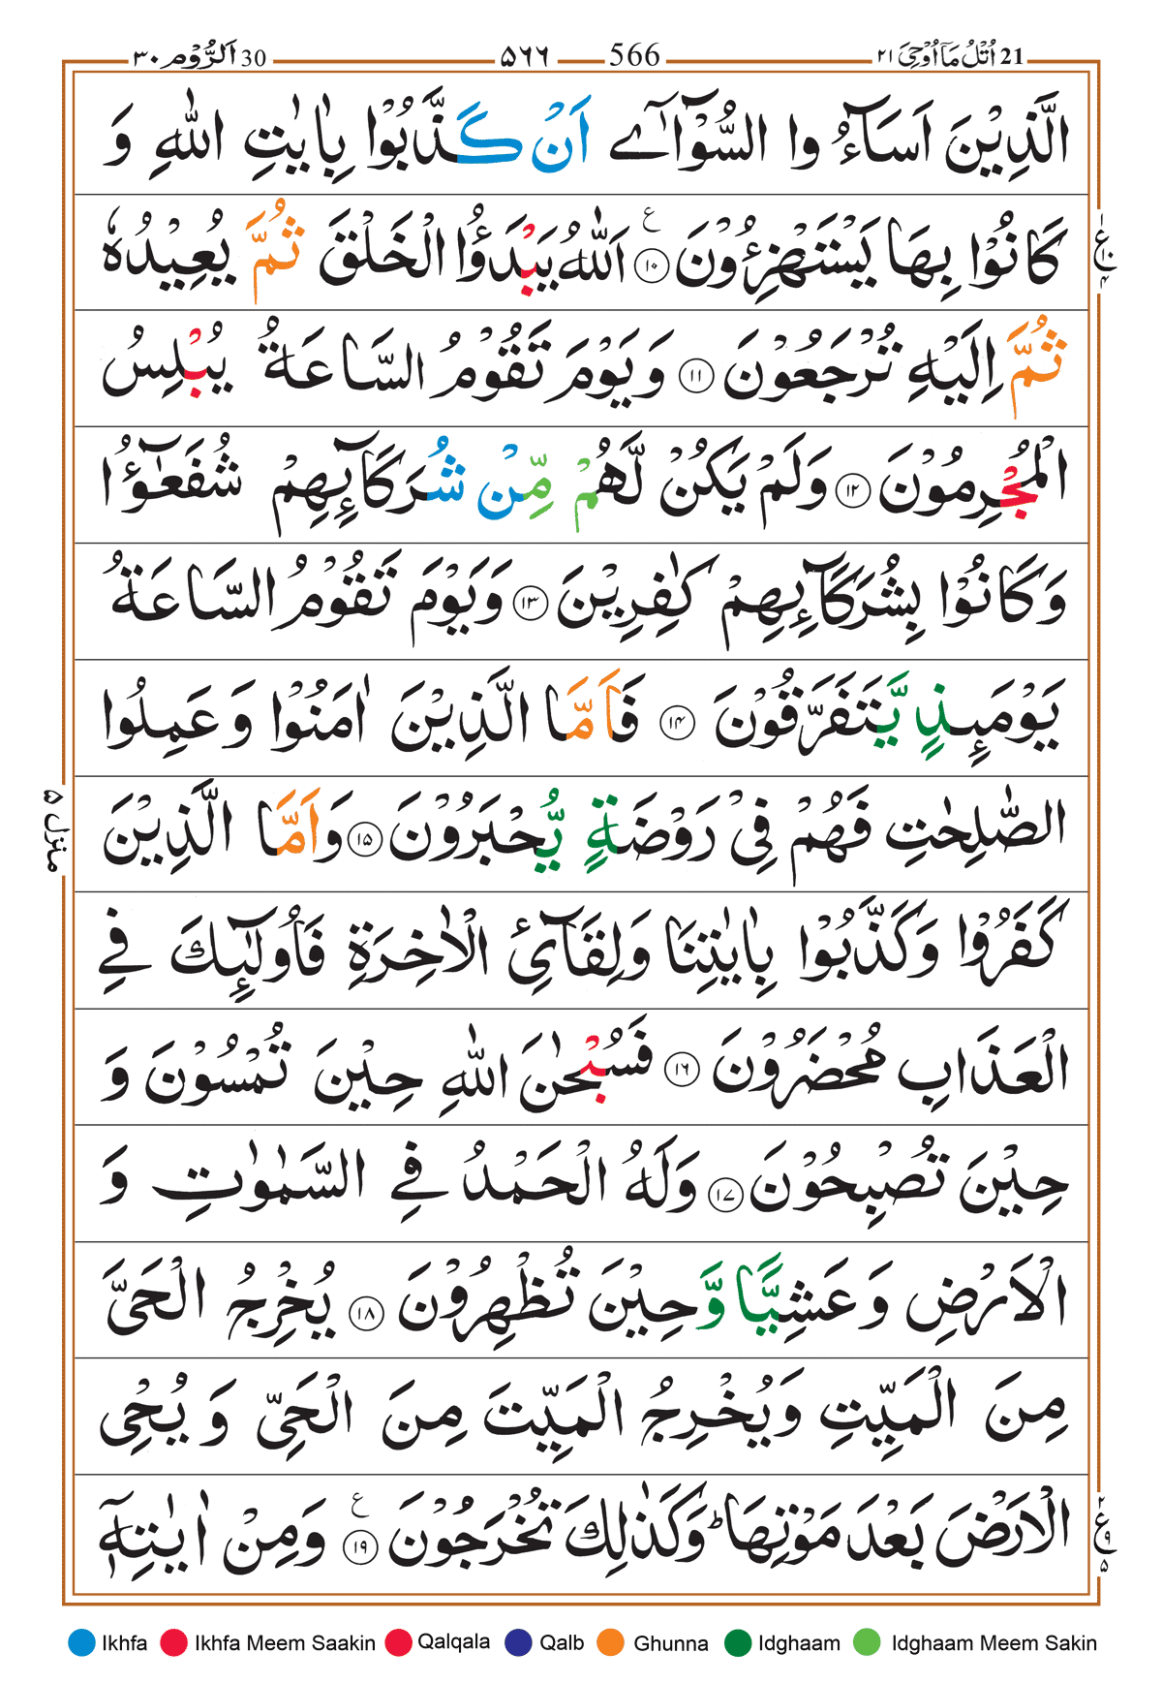 30 اَلرُّوْم ٣٠ ۵۶۶ 566 ٢١ اُتْلُ مَاۤ اُوْحِیَ 21
الَّذِیْنَ اَسَآءُ وا السُّوْٓاٰۤی اَنْ کَذَّبُوْا بِاٰیٰتِ اللّٰهِ وَ
کَانُوْا بِهَا یَسْتَهْزِءُوْنَ ﴿۱۰﴾ ع اَللّٰهُ یَبْدَؤُا الْخَلْقَ ثُمَّ یُعِیْدُهٗ
ثُمَّ اِلَیْهِ تُرْجَعُوْنَ ﴿۱۱﴾ وَ یَوْمَ تَقُوْمُ السَّاعَةُ یُبْلِسُ
الْمُجْرِمُوْنَ ﴿۱۲﴾ وَلَمْ یَکُنْ لَّهُمْ مِّنْ شُرَکَآئِهِمْ شُفَعٰٓؤُا
وَ کَانُوْا بِشُرَکَآئِهِمْ کٰفِرِیْنَ ﴿۱۳﴾ وَ یَوْمَ تَقُوْمُ السَّاعَةُ
یَوْمَئِذٍ یَّتَفَرَّقُوْنَ ﴿۱۴﴾ فَاَمَّا الَّذِیْنَ اٰمَنُوْا وَ عَمِلُوا
الصّٰلِحٰتِ فَهُمْ فِیْ رَوْضَةٍ یُّحْبَرُوْنَ ﴿۱۵﴾ وَاَمَّا الَّذِیْنَ
کَفَرُوْا وَکَذَّبُوْا بِاٰیٰتِنَا وَلِقَآئِ الْاٰخِرَةِ فَاُولٰٓئِکَ فِی
الْعَذَابِ مُحْضَرُوْنَ ﴿۱۶﴾ فَسُبْحٰنَ اللّٰهِ حِیْنَ تُمْسُوْنَ وَ
حِیْنَ تُصْبِحُوْنَ ﴿۱۷﴾ وَلَهُ الْحَمْدُ فِی السَّمٰوٰتِ وَ
الْاَرْضِ وَ عَشِیًّا وَّ حِیْنَ تُظْهِرُوْنَ ﴿۱۸﴾ یُخْرِجُ الْحَیَّ
مِنَ الْمَیِّتِ وَیُخْرِجُ الْمَیِّتَ مِنَ الْحَیِّ وَ یُحْیِ
الْاَرْضَ بَعْدَ مَوْتِهَا ؕ وَکَذٰلِکَ تُخْرَجُوْنَ ﴿۱۹﴾ ع وَمِنْ اٰیٰتِهٖۤ
منزل ۵
Ikhfa Ikhfa Meem Saakin Qalqala Qalb Ghunna Idghaam Idghaam Meem Sakin